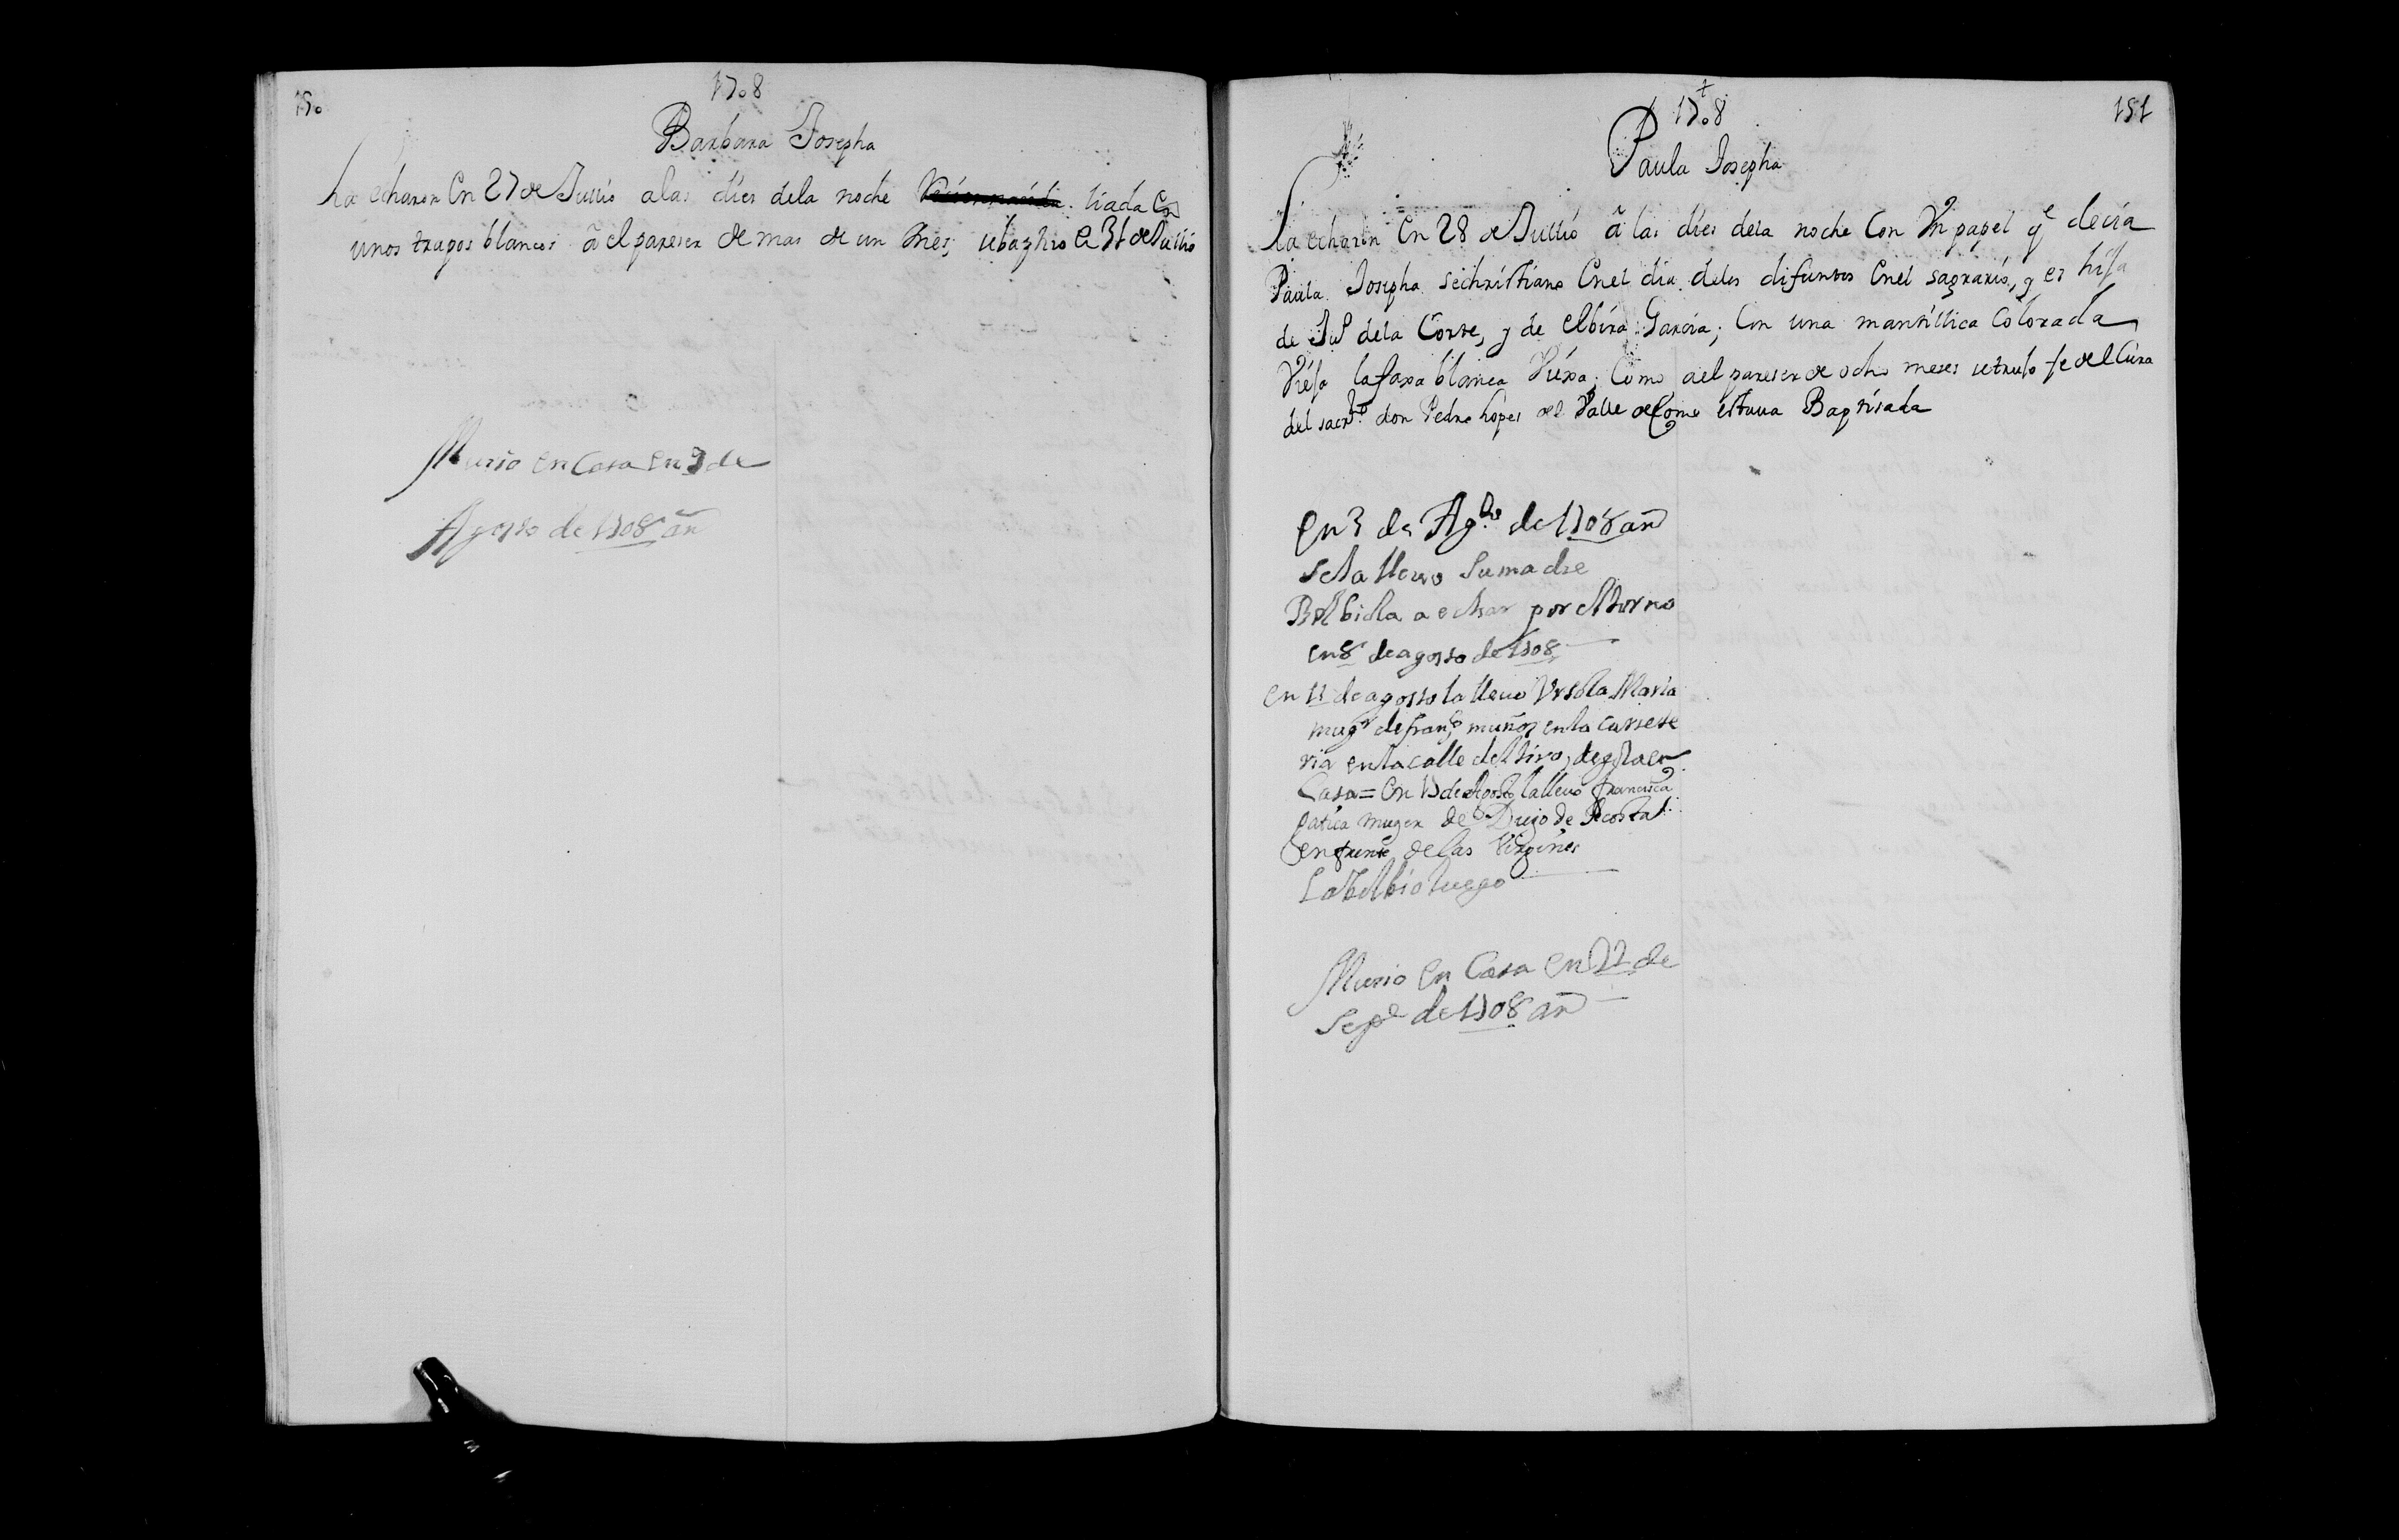 150
1708
Barbara Josepha
La echaron En 27 de Jullio a las dies dela noche liada En
unos trapos blancos â el pareser de mas de un mes; se baptiso El 31 de Jullio
Murio en Casa en 9 de
Agosto de 1708 añ
151
1708
Paula Josepha
La echaron En 28 de Jullio â las dies dela noche Con Vn papel qe decia
Paula Josepha se christiano Enel dia delos difuntos Enel sagrario, y es hija
de Ju dela Corte, y de elbira Garcia; Con una mantillica Colorada
Vieja la faxa blanca Viexa; Como ael pareser de ocho meses se trujo fe del Cura
del sagro don Pedro Lopes del Valle de Como estaua Baptisada
en 3 de Agto de 1708 añ
se la lleuo su madre
Bolbiola a echar por el torno
en 8 de agosto de 1708
en 11 de agosto la lleuo Vrsola Maria
mugr de franco muñoz en la carrete
ria en la calle del tiro, de esta en
Casa = En 13 de Agosto la lleuo francisca
patiça muger de Diego de Acosta
enfrente de las Virgines
La bolbio luego
Murio en Casa en 22 de
Sepe de 1708 añ